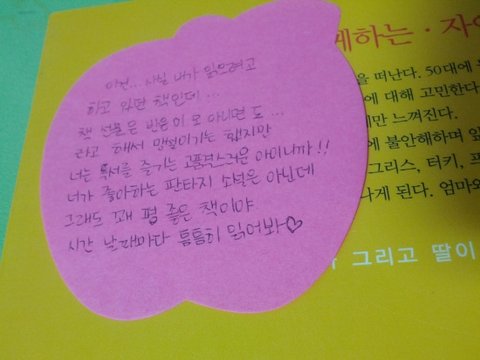 이건... 사실 내가 읽으려고
하고 와던 책인데 ...
책 선물은 반은이 모 아니면 도 ...
라고 해서 망설이기는 했지만
너는 독서를 즐기는 아이니까!!
너가 좋아하는 판타지 소설은 아닌데
그래도 꽤 평 좋은 책이야
시간 날때마다 틈틈히 읽어봐♡
께하는 ·
을 떠난다. 50대에
에 대해 고민한다.
만 느껴진다.
에 불안해하며
그리스, 터키,
나게 된다. 엄마와
그리고 딸이